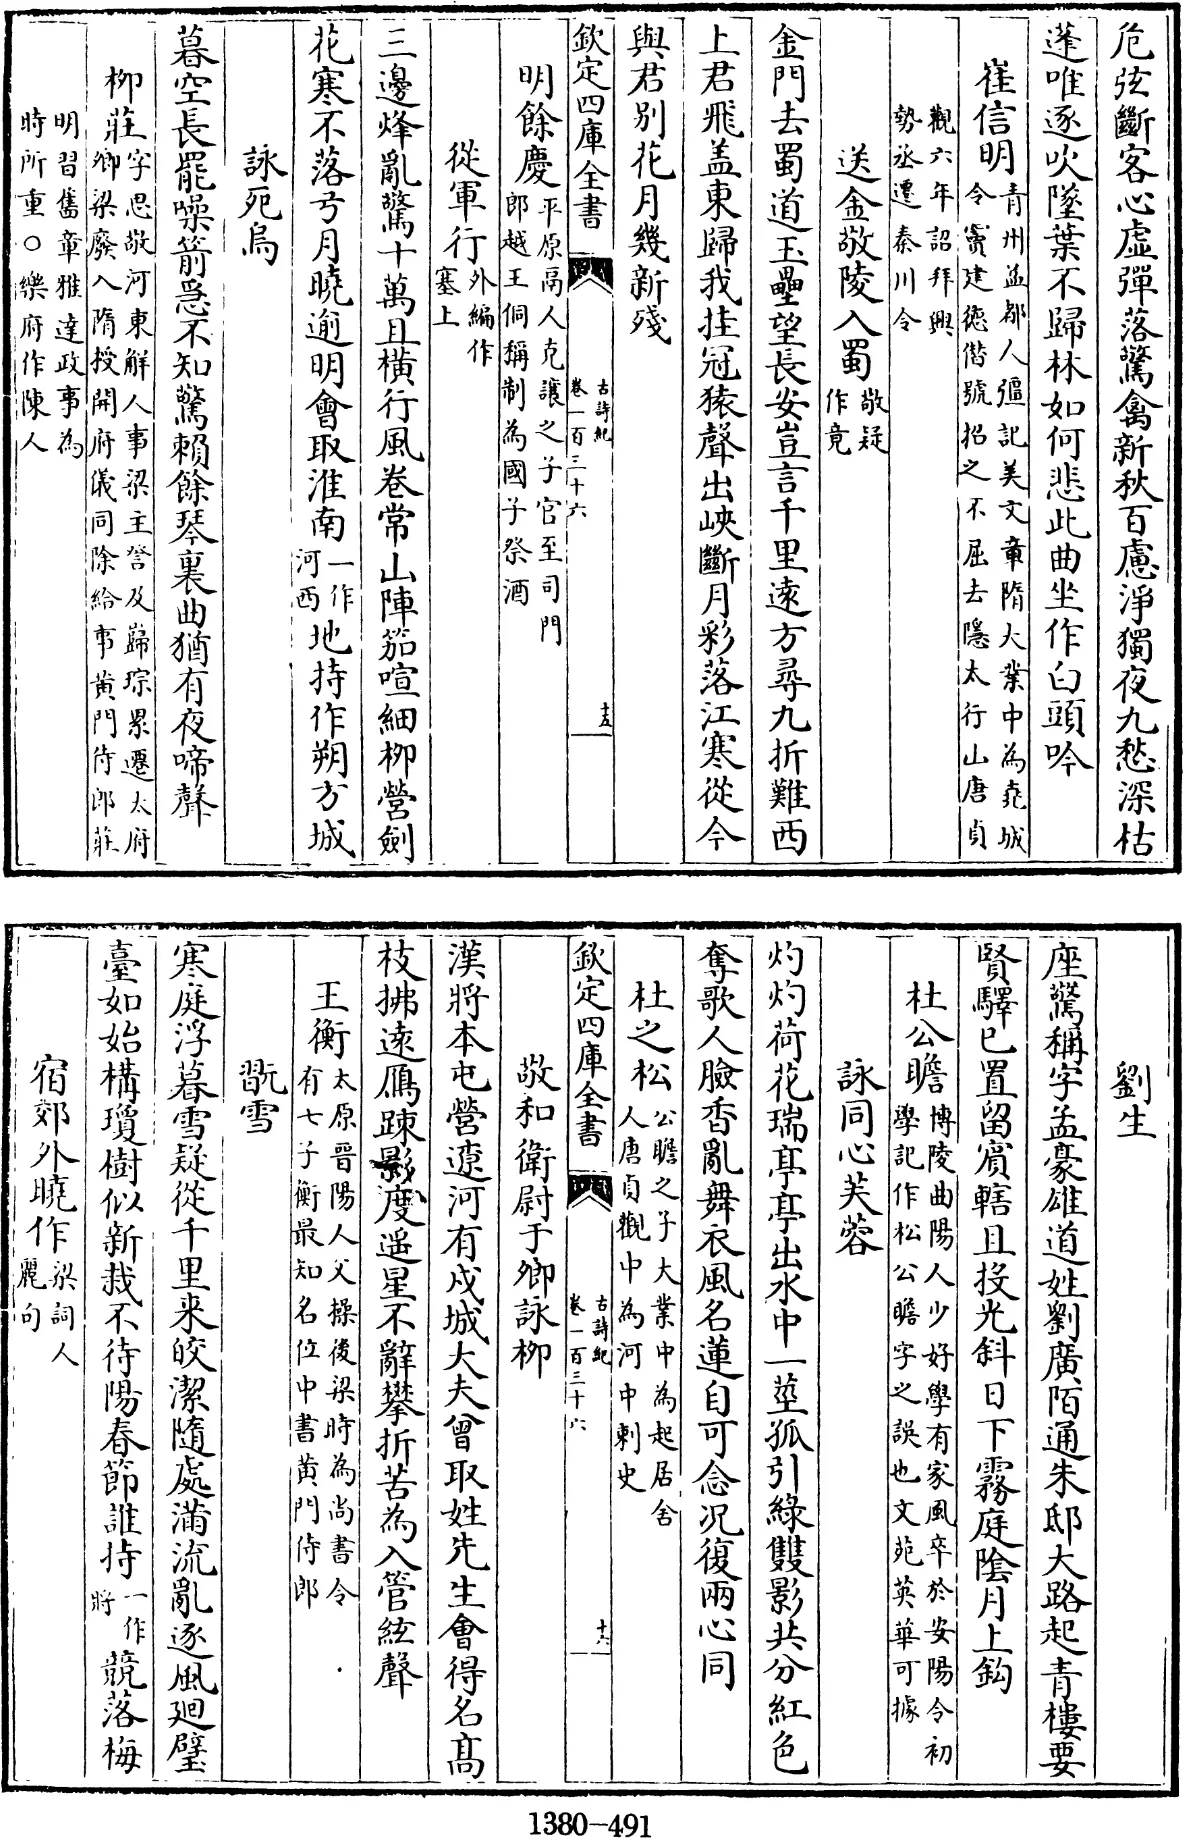 危弦斷客心虛彈落驚禽新秋百慮淨獨夜九愁深枯
蓬唯逐吹墜葉不歸林如何悲此曲坐作白頭吟
崔信明青州益都人彊記美文章隋大業中為堯城
令竇建德僣號招之不屈去隱太行山唐貞
觀六年詔拜興
勢丞遷秦川令
送金敬陵入蜀敬疑
作竟
金門去蜀道玉壘望長安豈言千里逺方尋九折難西
上君飛盖東歸我挂冠猿聲出峽斷月彩落江寒從今
與君别花月幾新殘
欽定四庫全書
古詩紀
卷一百三十六
十五
明餘慶平原鬲人克讓之子官至司門
郎越王侗稱制為國子祭酒
從軍行外編作
塞上
三邊烽亂驚十萬且横行風卷常山陣笳喧細柳營劍
花寒不落弓月曉逾明會取淮南一作
河西地持作朔方城
詠死烏
暮空長罷噪箭急不知驚賴餘琴裏曲猶有夜啼聲
柳莊字思敬河東解人事梁主詧及巋琮累遷太府
卿梁廢入隋授開府儀同除給事黄門侍郎莊
明習舊章雅達政事為
時所重○樂府作陳人
劉生
座驚稱字孟豪雄道姓劉廣陌通朱邸大路起青樓要
賢驛已置留賓轄且投光斜日下霧庭陰月上鈎
杜公瞻博陵曲陽人少好學有家風卒於安陽令初
學記作松公瞻字之誤也文苑英華可據
詠同心芙蓉
灼灼荷花瑞亭亭出水中一莖孤引綠雙影共分紅色
奪歌人臉香亂舞衣風名蓮自可念况復兩心同
杜之松公瞻之子大業中為起居舍
人唐貞觀中為河中刺史
欽定四庫全書
古詩紀
卷一百三十六
十六
敬和衛尉于卿詠柳
漢將本屯營遼河有戍城大夫曾取姓先生會得名髙
枝拂逺鴈踈影度遥星不辭攀折苦為入管絃聲
王衡太原晋陽人父操後梁時為尚書令
有七子衡最知名位中書黄門侍郎
翫雪
寒庭浮暮雪疑從千里来皎潔隨處滿流亂逐風廻璧
臺如始構瓊樹似新栽不待陽春節誰持一作
將競落梅
宿郊外曉作梁詞人
麗句
1380-491